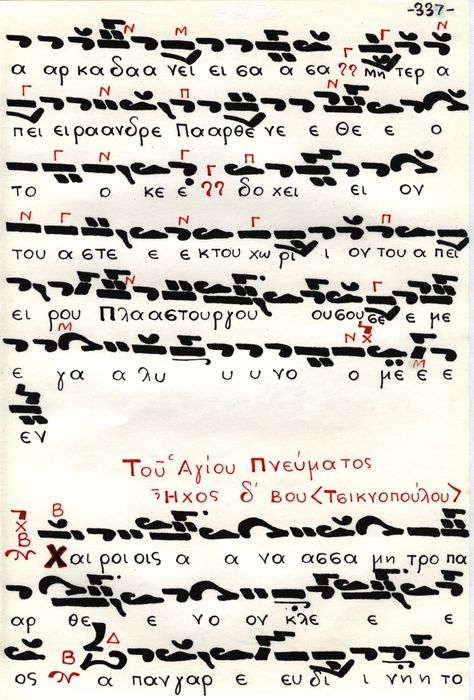 -337-
Ν Μ Γ Γ Ν
α αρκαδαα νει ει σα α σα ?? μη τερ α
Γ Ν Π Ν
πει ειραανδρε Πααρθε νε ε Θε ε ο
Γ Ν Γ Γ Π
το ο κε ε ?? δο χει ει ον
Ν Γ Ν Γ Π
του α στε ε ε κτου χω ρι ι οντου α πει
Ν Γ
ει ρου Πλααστουργου ουσουσε ε με
Μ Ν χ Μ
ε γα α λυ υ υ νο ο με ε ε
εν
Τοῦ Ἁγίου Πνεύματος
Ἦχος δ' Βου <Τσικνοπούλου>
χ Β Β
Χαι ροι οις α α να ασσα μη τρο πα
αρ θε ε νο ον κλε ε ε
Β Δ
ος α παν γαρ ε ευ δι ι νη η το